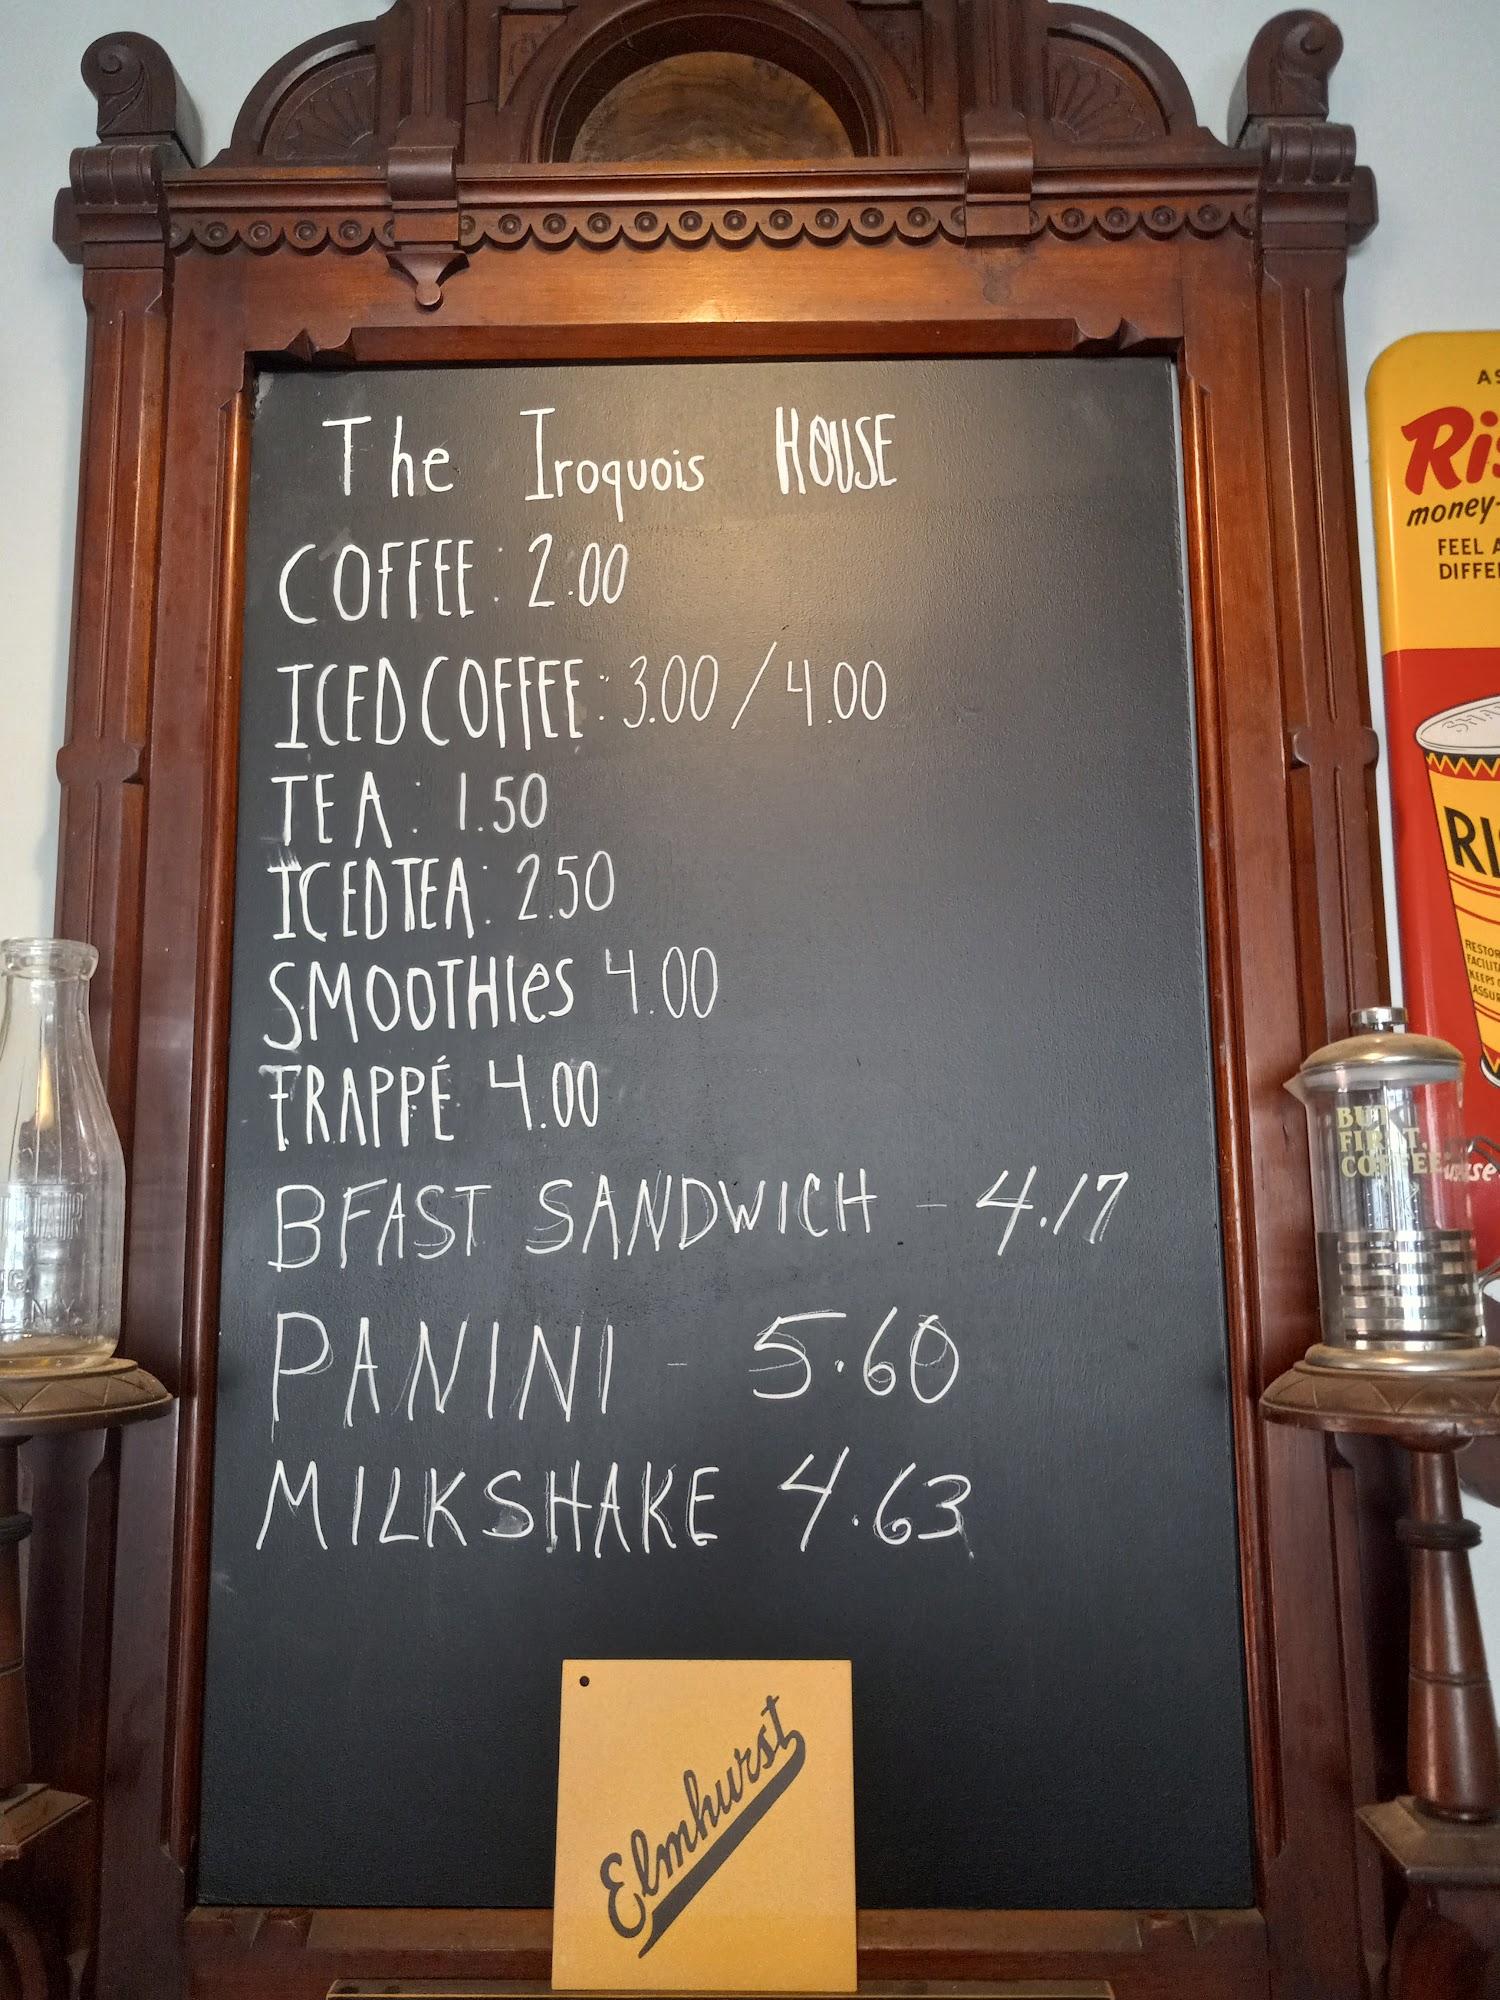 The Iroquois HOUSE
COFFEE: 2.00
ICED COFFEE: 3.00 / 4.00
TEA: 1.50
ICED TEA: 2.50
SMOOTHIeS 4.00
FRAPPÉ 4.00
BFAST SANDWICH - 4.17
PANINI - 5.60
MILKSHAKE 4.63
Elmhurst
money-
FEEL A
DIFFE
BUT
FIRST,
COFFEE